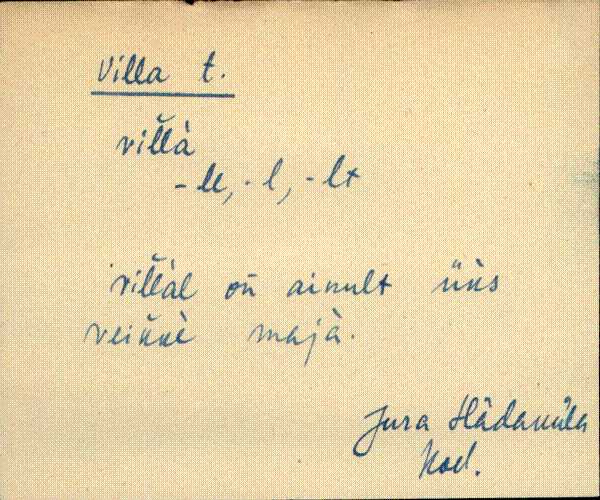 Villa t.
villà
-le, -l, -lt
villàl on ainult üks
veikkè majà.
Jura Hädaküla
Kod.